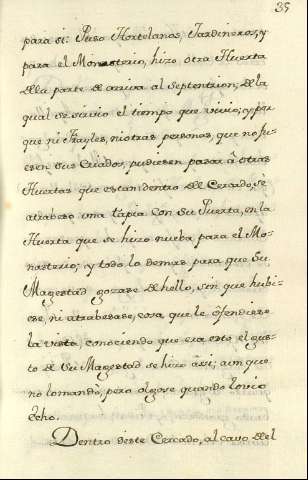 35
para si: Puso Hortelanos, Jardineros, y
para el Monasterio, hizo otra Huerta
de la parte de arriva al Septentrion, de la
qual se sirvio el tiempo que vivio; y por
que ni Frayles, ni otras personas, que no fu-
esen sus Criados, pudiesen pasar â otras
Huertas que estan dentro del Cercado, se
atrabeso una tapia con su Puerta, en la
Huerta que se hizo nueba para el Mo-
nasterio; y todo lo demas para que Su
Magestad gozase de hello, sin que hubi-
ese, ni atrabesase, cosa que le ôfendiese
la vista, conociendo que era este el gus-
to de Su Magestad se hizo âsi; aunque
no lo mando, pero olgose quando lo vio
êcho.
Dentro deste Cercado, al cavo del